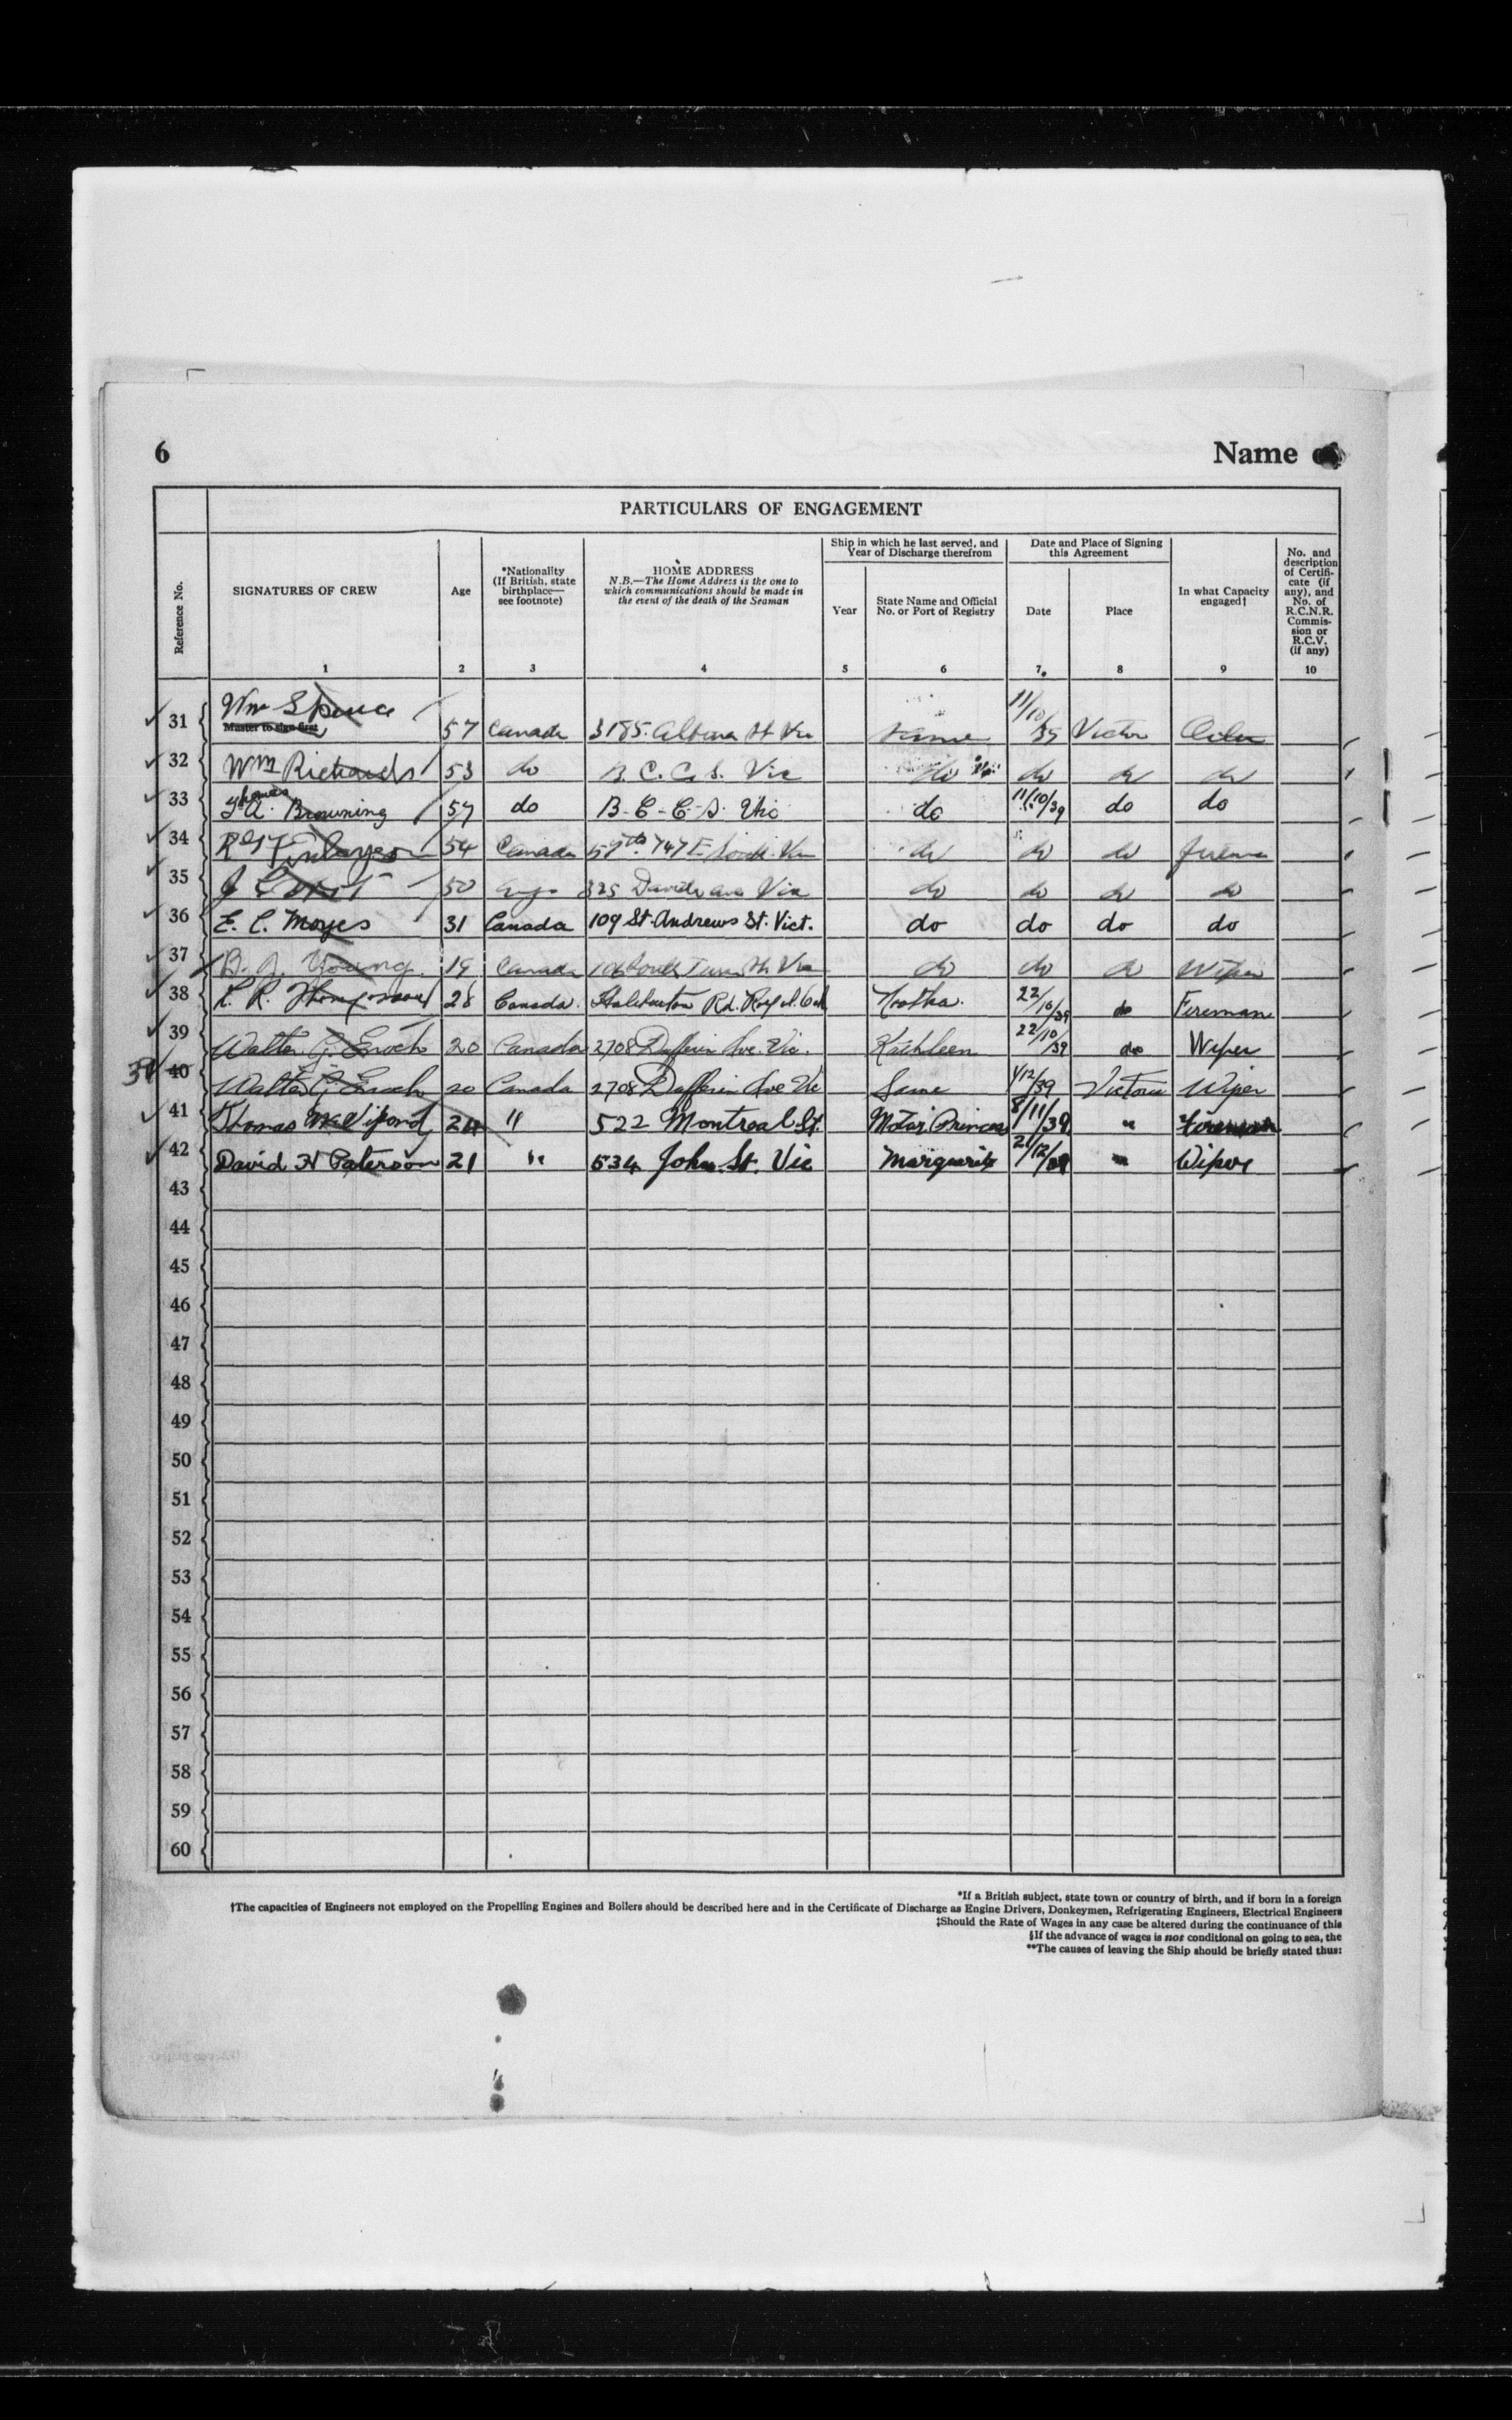 6 Name of
PARTICULARS OF ENGAGEMENT
Reference No.
SIGNATURES OF CREW
1
Age
2
*Nationality
(If British, state
birthplace—
see footnote)
3
HOME ADDRESS
N.B.—The Home Address is the one to
which communications should be made in
the event of the death of the Seaman
4
Ship in which he last served, and
Year of Discharge therefrom
Year
5
State Name and Official
No. or Port of Registry
6
Date and Place of Signing
this Agreement
Date
7
Place
8
In what Capacity
engaged†
9
No. and
description
of Certifi-
cate (if
any), and
No. of
R.C.N.R.
Commis-
sion or
R.C.V.
(if any)
10
31 Wm Spence Master to sign first 57 Canada 3185 Albina St Vic Same 11/10/39 Victor Oiler
32 Wm Richards 53 do B. C. C. S. Vic do do do do
33 Thomas A. Browning 57 do B-C-C-S. Vic do 11/10/39 do do
34 Finlayson 54 Canada 57th 747 E do do do Fireman
35 J 50 325 Davida ave Vic do do do do
36 E. C. Moyes 31 Canada 109 St. Andrews St. Vict. do do do do
37 B. J. Young 19 Canada do do do Wiper
38 R. R. Thompson 28 Canada Haliburton Rd. Royal Oak Nootka. 22/10/39 do Fireman
39 Walter G. Enoch 20 Canada 2708 Dufferin Ave. Vic. Kathleen 22/10/39 do Wiper
39 40 Walter G. Enoch 20 Canada 2708 Dufferin Ave Vic Same 1/12/39 Victoria Wiper
41 Thomas 24 " 522 Montreal St. Motor Princess 8/11/39 " Fireman
42 David H Paterson 21 " 634 John. St. Vic Marguerite 21/12/39 " Wiper
43
44
45
46
47
48
49
50
51
52
53
54
55
56
57
58
59
60
*If a British subject, state town or country of birth, and if born in a foreign
†The capacities of Engineers not employed on the Propelling Engines and Boilers should be described here and in the Certificate of Discharge as Engine Drivers, Donkeymen, Refrigerating Engineers, Electrical Engineers
‡Should the Rate of Wages in any case be altered during the continuance of this
§If the advance of wages is not conditional on going to sea, the
**The causes of leaving the Ship should be briefly stated thus: